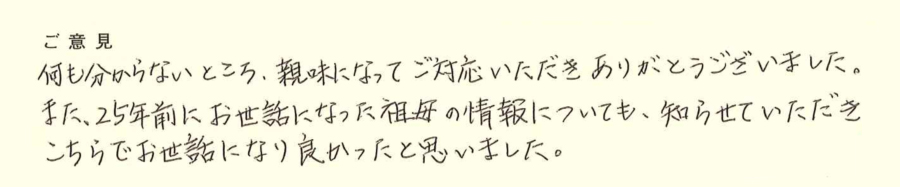 ご意見
何も分からないところ、親味になってご対応いただきありがとうございました。
また、25年前にお世話になった祖母の情報についても、知らせていただき
こちらでお世話になり良かったと思いました。